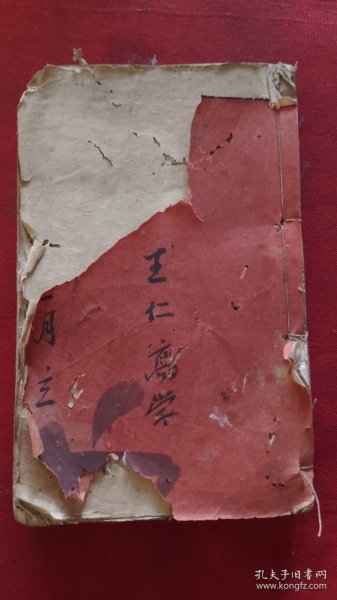 王仁高学
月立
孔夫子旧书网
www.kongfz.com